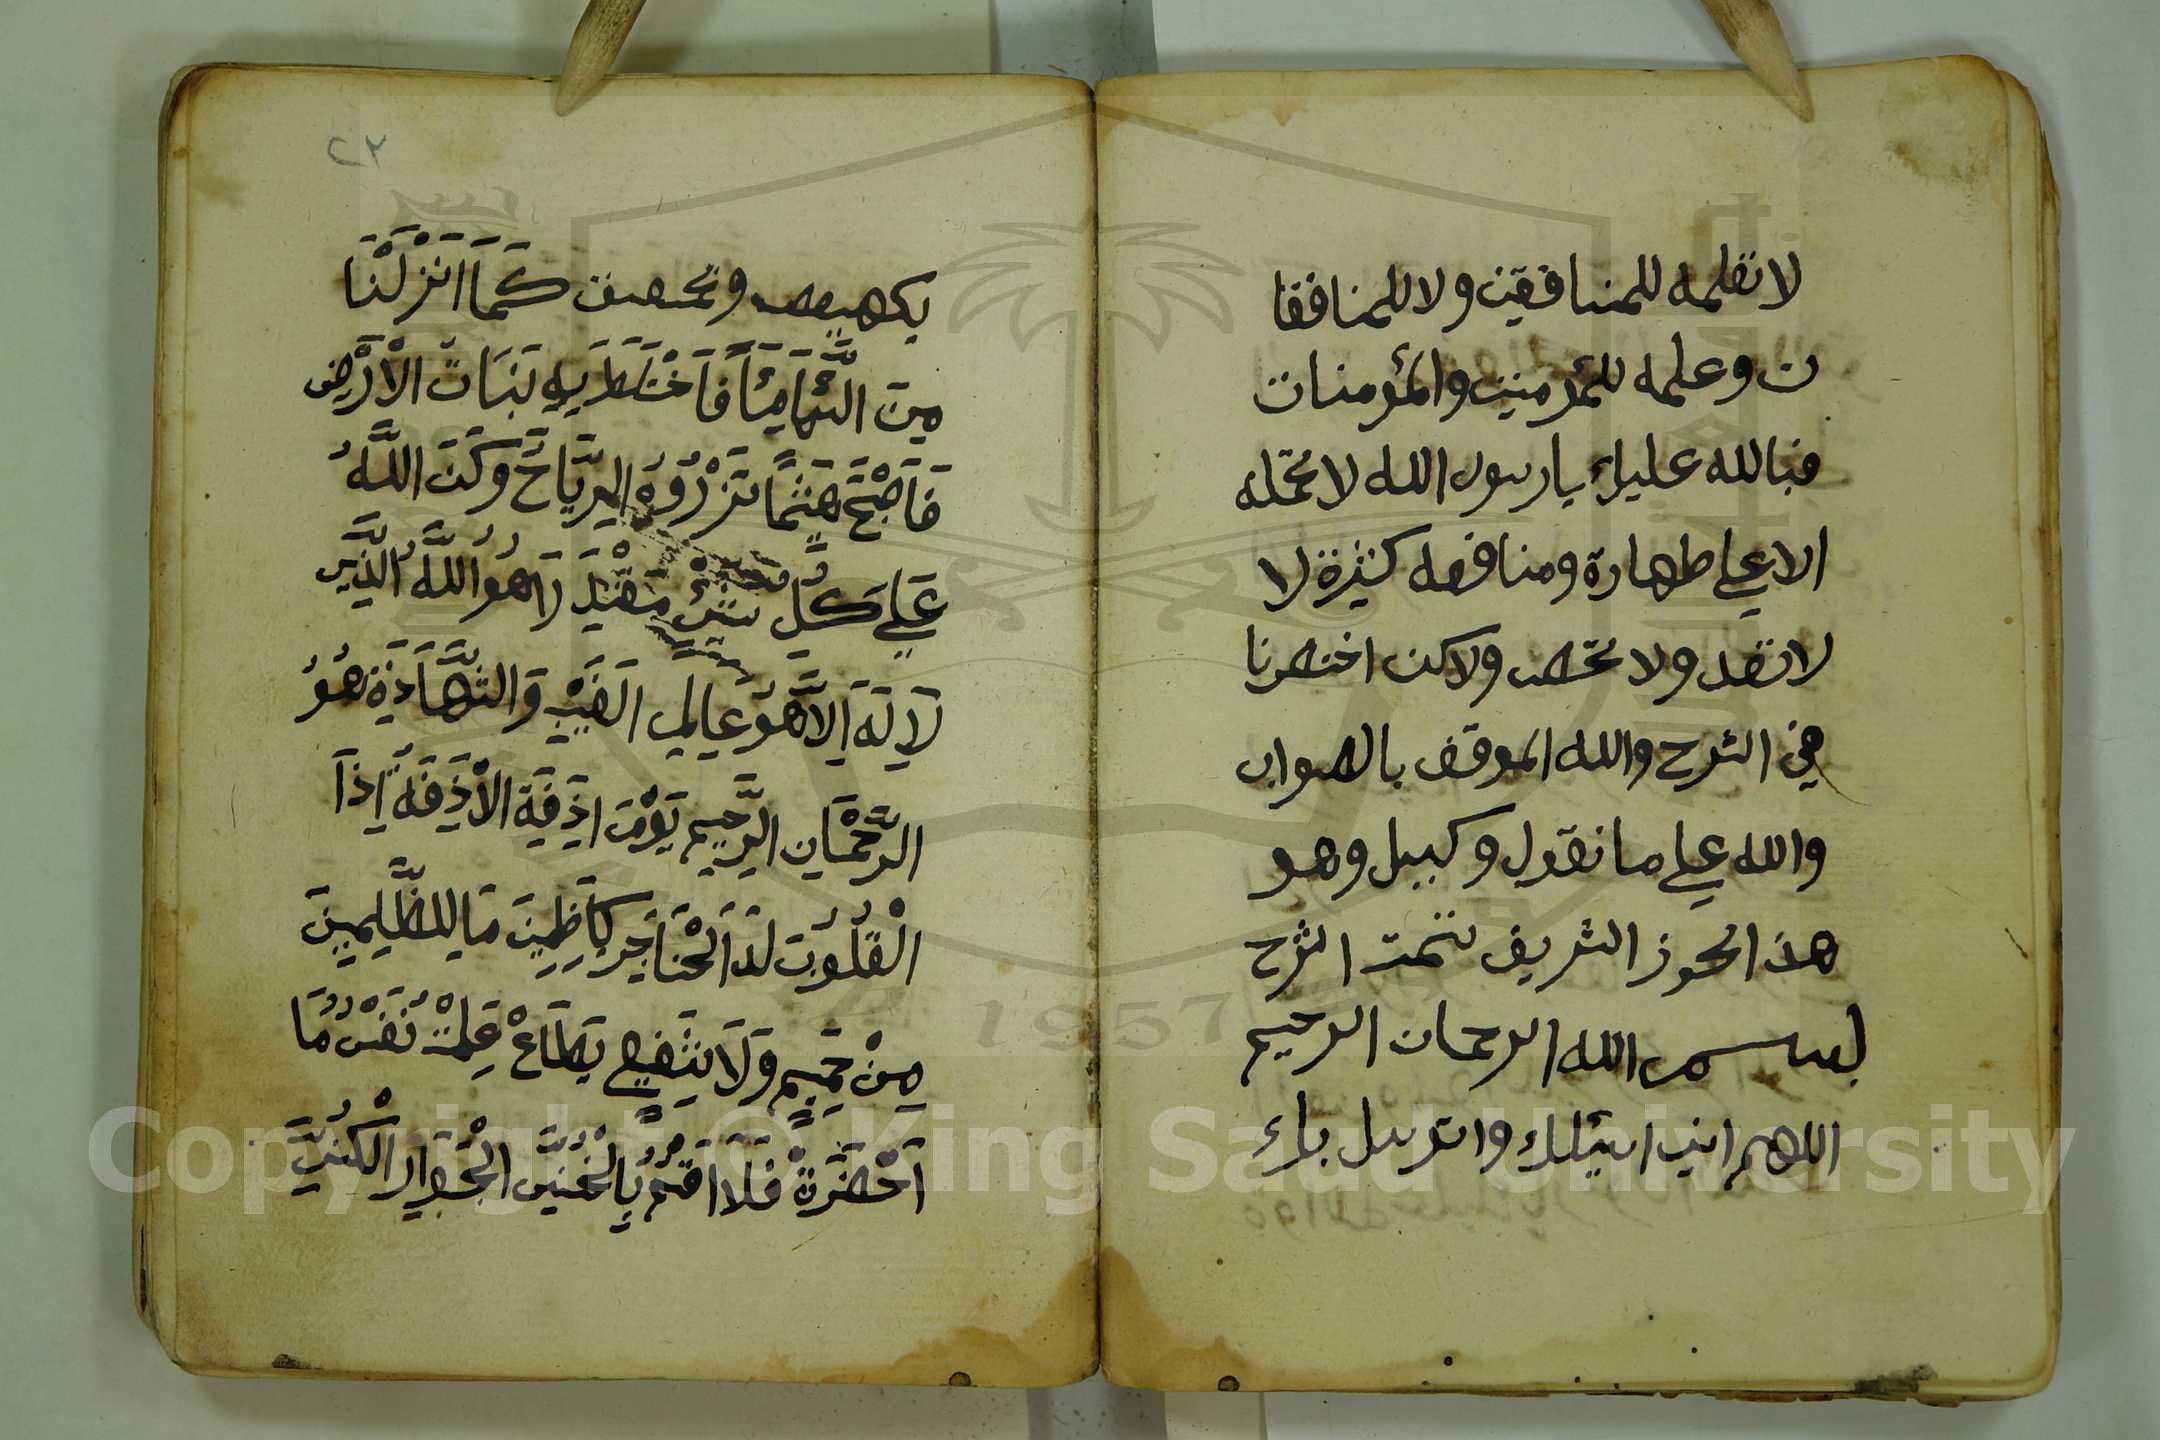 لا تعلمه للمنافقين ولا للمنافقا
ت وعلمه للمؤمنين والمؤمنات
فبالله عليك يا رسول الله لا تحمله
الا علي طهارة ومنافعه كثيرة لا
لا تعد ولا تحص ولاكن اختصرنا
في الشرح والله الموفق بالصواب
والله علي ما نقول وكييل وهو
هذ الحوز الشريف تتمت الشرح
بسم الله الرحمان الرحيم
اللهم اني اسئلك واتوسل بك
٢٢
بكهيعص وبحمعسق كَمَا انَزَلْنَا
مِنَ السَّمَاءِ مَآءً فَاخْتَلَطَ بِهِ نَبَاتُ الْاَرْضِ
فَاَصْبَحَ هَشِيمًا تَذْرُوهُ الرِّيَاحُ وَكَنَ اللَّهُ
عَلَي كُلِّ شَيْءٍ مُقْتَدِرًا هُوَ اللَّهُ الَّذِي
لَا اِلَهَ اِلَّا هُوَ عَالِمِ الغَيْبِ وَالشَّهَادَةِ هُوَ
الرَّحْمَانِ الرَّحِيمِ يَوْمَ ازِفَةِ الْاَزِفَةُ اِذَا
الْقُلُوبَ لَدَا الْحَنَاجِرِ كَاظِمِينَ مَا لِلظَّلِمِينَ
مِنْ حَمِيمٍ وَلَا شَفِيعٍ يُطَاعْ عَلِمَتْ نَفْسٌ مَا
اَحْضَرَةْ فَلَا اُقْسِمُ بِالْخُنَّسِ الْجَوَارِ الْكُنَّسِ
Copyright © King Saud University
1957